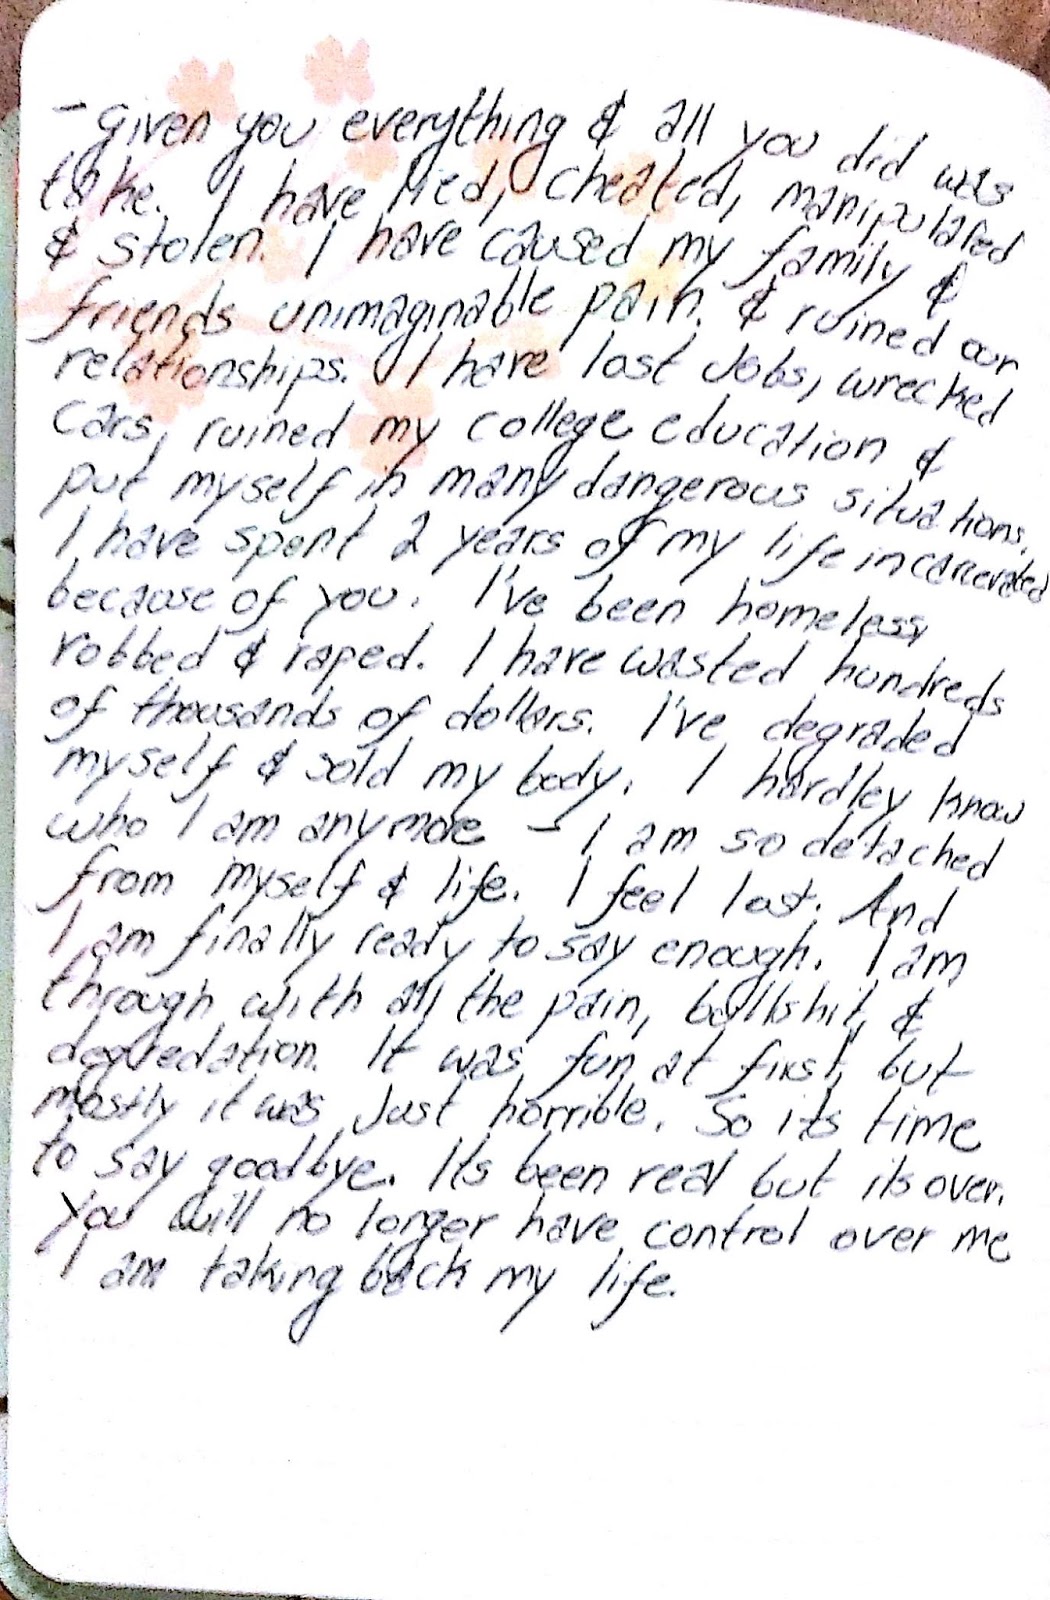 - given you everything & all you did was
take. I have lied, cheated, manipulated
& stolen. I have caused my family &
friends unimaginable pain, & ruined our
relationships. I have lost Jobs, wrecked
cars, ruined my college education &
put myself in many dangerous situations.
I have spent 2 years of my life incarcerated
because of you. I've been homeless,
robbed & raped. I have wasted hundreds
of thousands of dollars. I've degraded
myself & sold my body. I hardley know
who I am anymore - I am so detached
from myself & life. I feel lost. And
I am finally ready to say enough. I am
through with all the pain, bullshit, &
degredation. It was fun at first, but
mostly it was Just horrible. So its time
to say goodbye. Its been real but its over.
You will no longer have control over me
I am taking back my life.